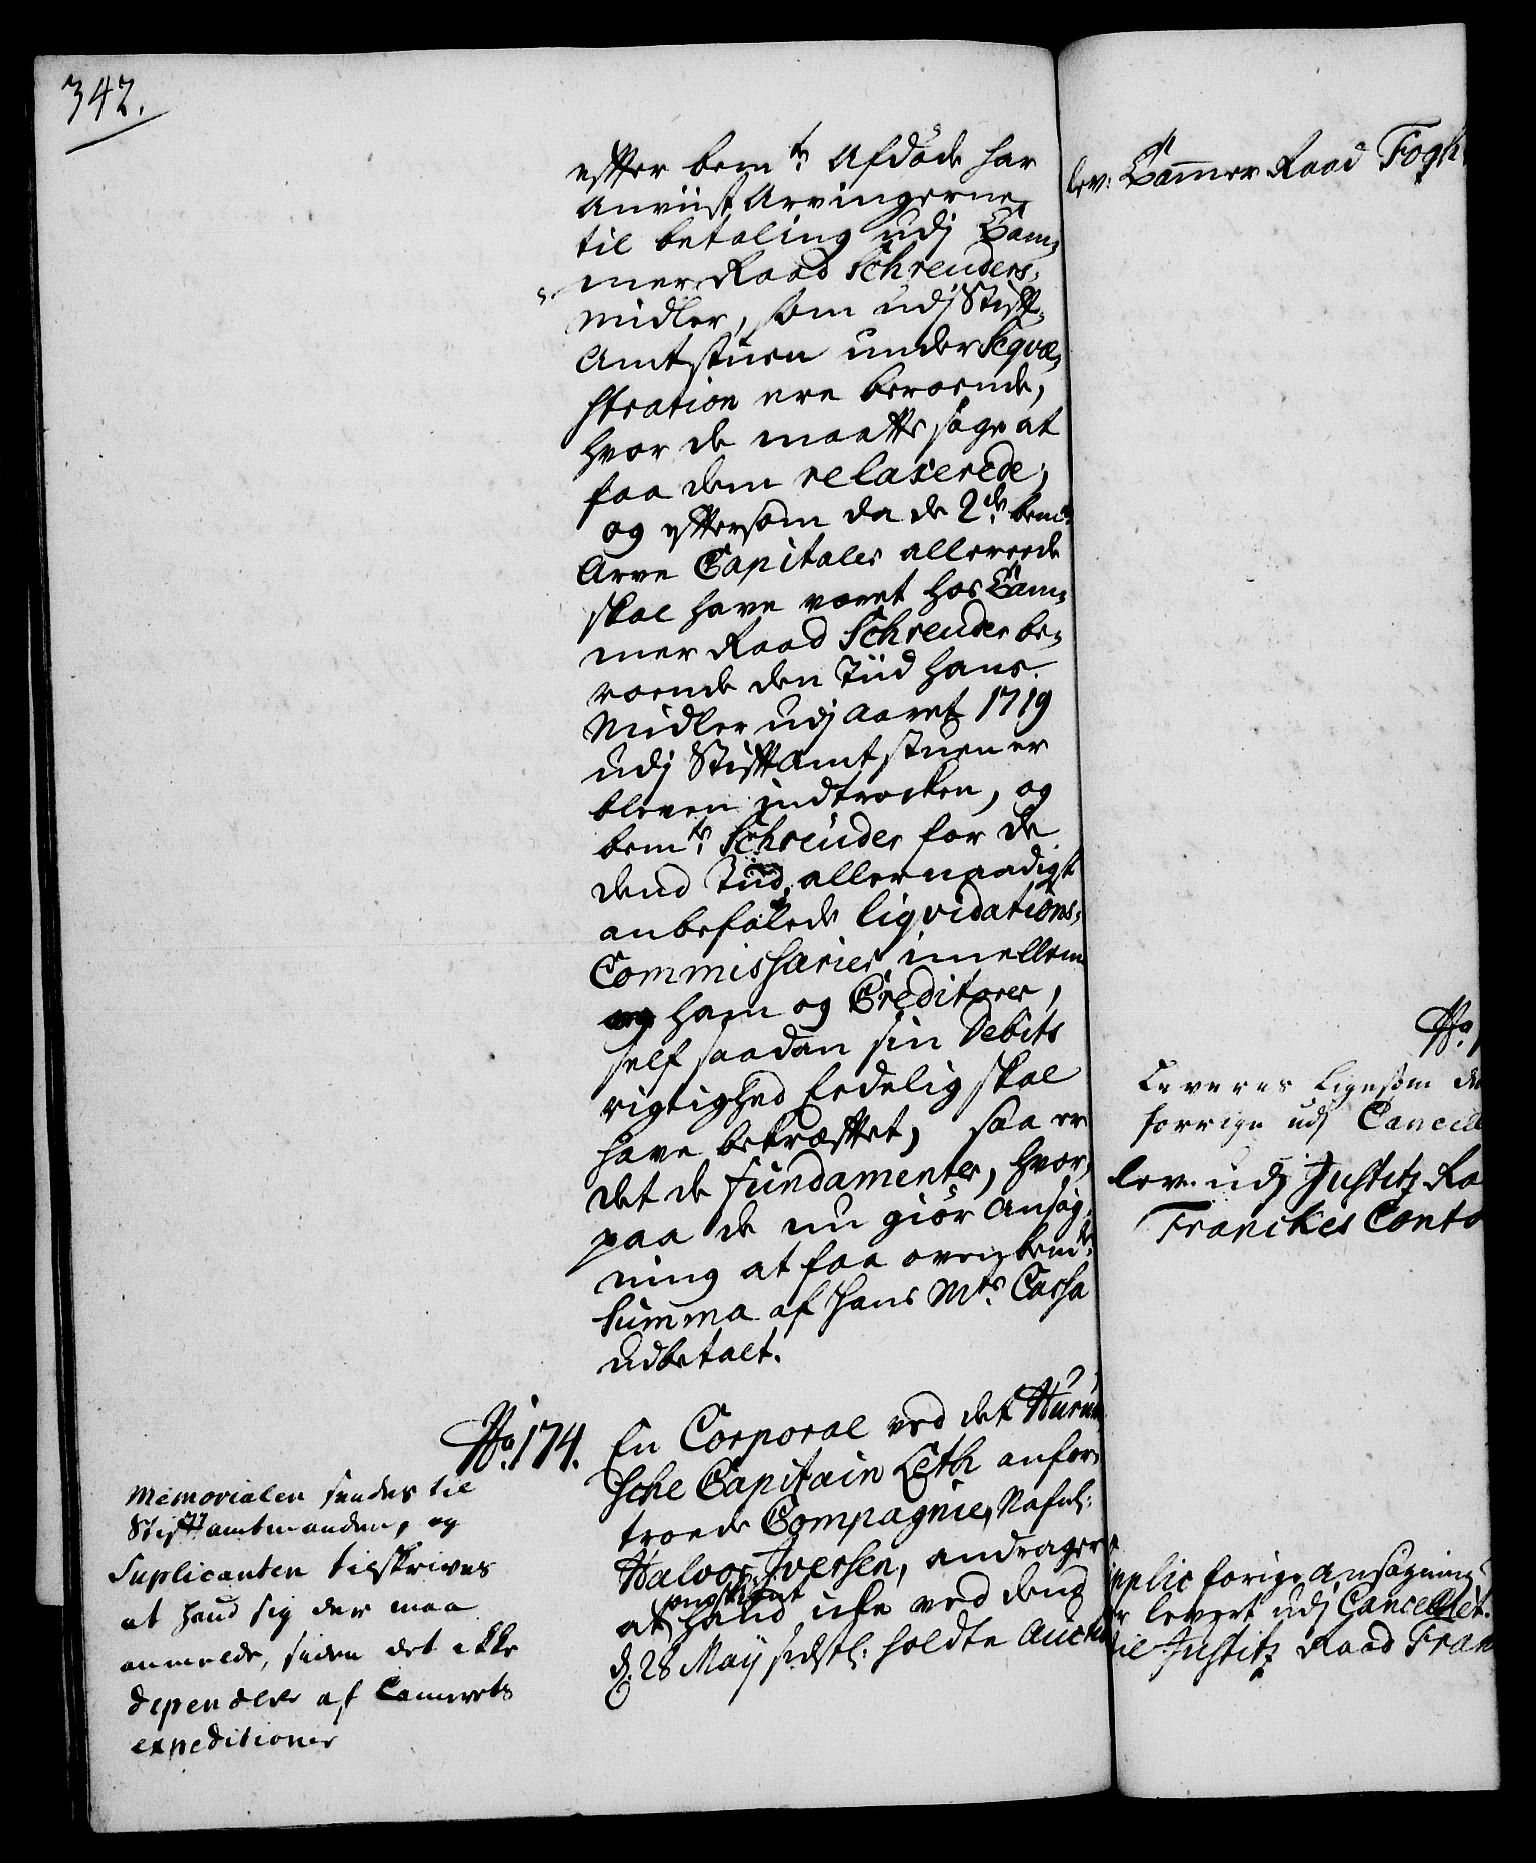 342.
efter bem.te Afdøde har
Anviist Arvingerne
til betaling udj Cam¬
mer Raad Schreuders
midler, som udj Stift¬
Amtstuen under Seqve¬
stration ere beroende,
hvor de maatte søge at
faa dem relaxerede;
og eftersom da de 2de bem.te
Arve Capitaler allereede
skal have været hos Cam¬
mer Raad Schreuder be¬
roende den Tiid hans
Midler udj aaret 1719
udj StiftAmtstuen er
bleven indtrocken, og
bem.te Schreuder for de
dend Tiid allernaadigst
anbefalede liqvidations¬
Commissarier imellem
ham og Creditorer,
self saadan sin Debits
rigtighed Eedelig skal
have bekræftet, saa er
det de fundamenter, hvor¬
paa de nu giør Ansøg¬
ning at faa ovenbem.te
Summa af Hans Mts. Cassa
udbetalt.
No. 174. En Corporal ved det Hurum
sche Capitain Leth anfor¬
troede Compagnie, Nafnl:
Halvor Iversen, andrager
at hand
ongskiønt
ufe ved dend
d. 28 Maij sidstl: holdte Auct
Memorialen sendes til
Stiftamtmanden, og
Suplicanten tilskrives
at hand sig der maa
anmelde, siden det ikke
dependerer af Cammerets
expeditioner
lev: Cammer Raad Fogh
No.
Leveres ligesom de
forrige udj Cancell
lev. udj Justitz Ra
Franckes Conto
pplic forige Ansøgning
r levert udj Cancelliet.
til Justitz Raad Fran